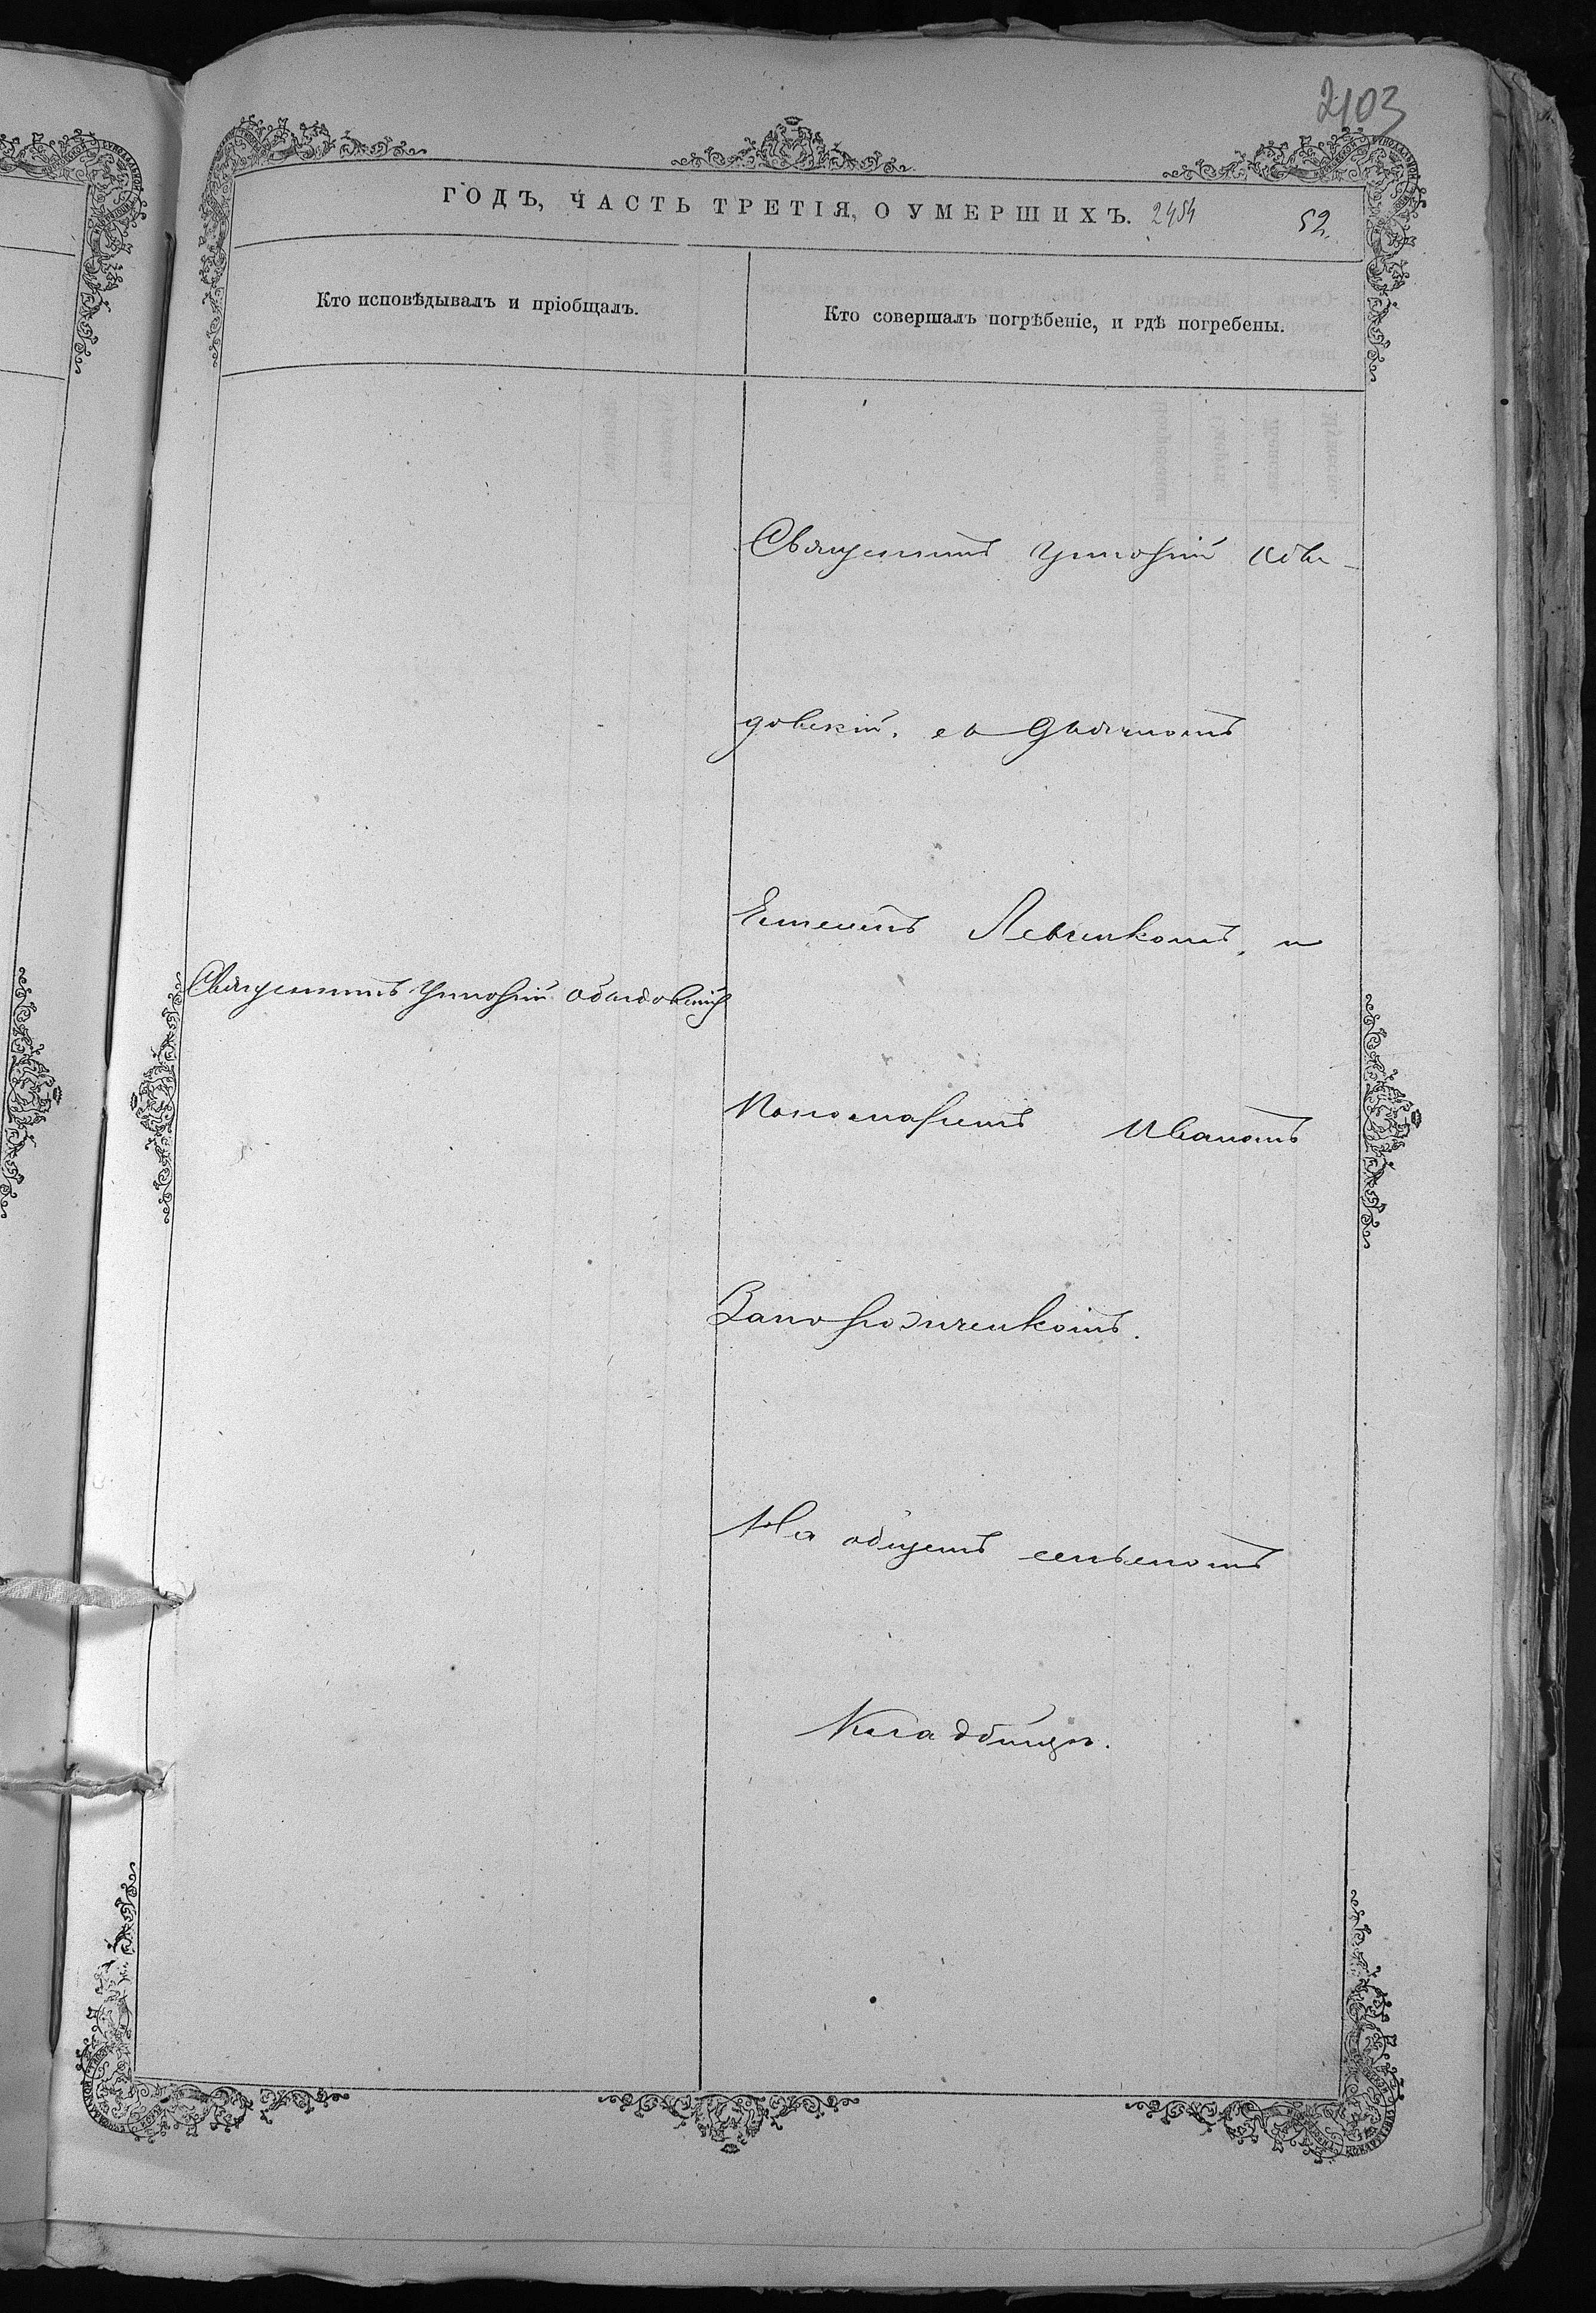 2103
ГОДЪ, ЧАСТЬ ТРЕТІЯ, О УМЕРШИХЪ. 2454 52.
Кто исповѣдывалъ и пріобщалъ.
Кто совершалъ погрѣбеніе, и гдѣ погребены.
Священникъ Григорій
довскій, съ Дьячкомъ
Левченкомъ, и
Священникъ Григорій
Пономаремъ Иваномъ
Запорожченкомъ.
На общемъ сельскомъ
Кладбищѣ.